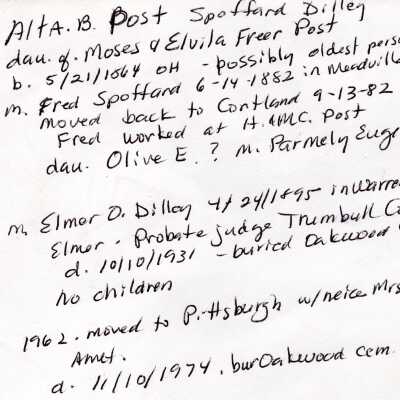 Alta. B. Post Spoffard Dilley
dau. of. Moses & Elvila Freer Post
b. 5/21/1864 OH - possibly oldest perso
m. Fred Spoffard 6-14-1882 in Meadville
moved back to Cortland 9-13-82
Fred worked at H. & MC. Post
dau. Olive E. ? m. Parmely Euge
m. Elmer O. Dilley 4/24/1895 in Warre
Elmer. Probate judge Thumbull C
d. 10/10/1931 - buried Oakwood
No children
1962. moved to Pittsburgh w/neice Mrs
Amet.
d. 11/10/1974, bur Oakwood cem.